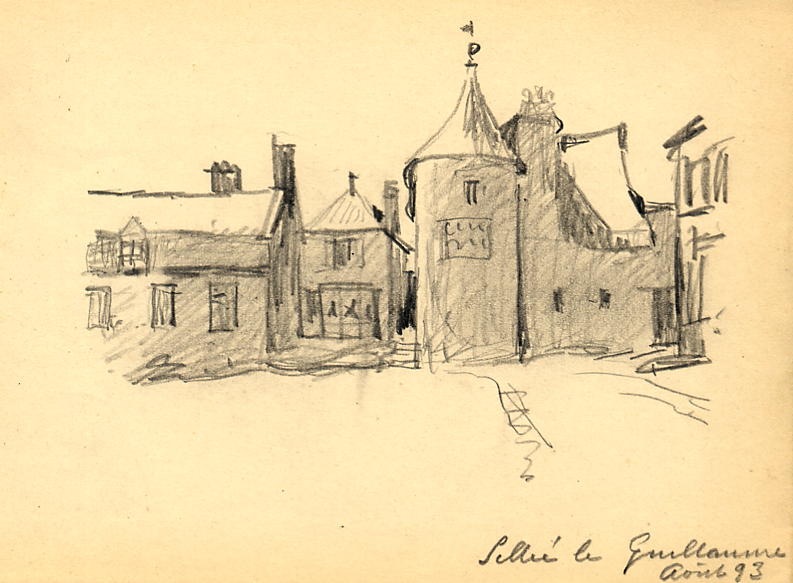 Sillié le Guillaume
Août 93